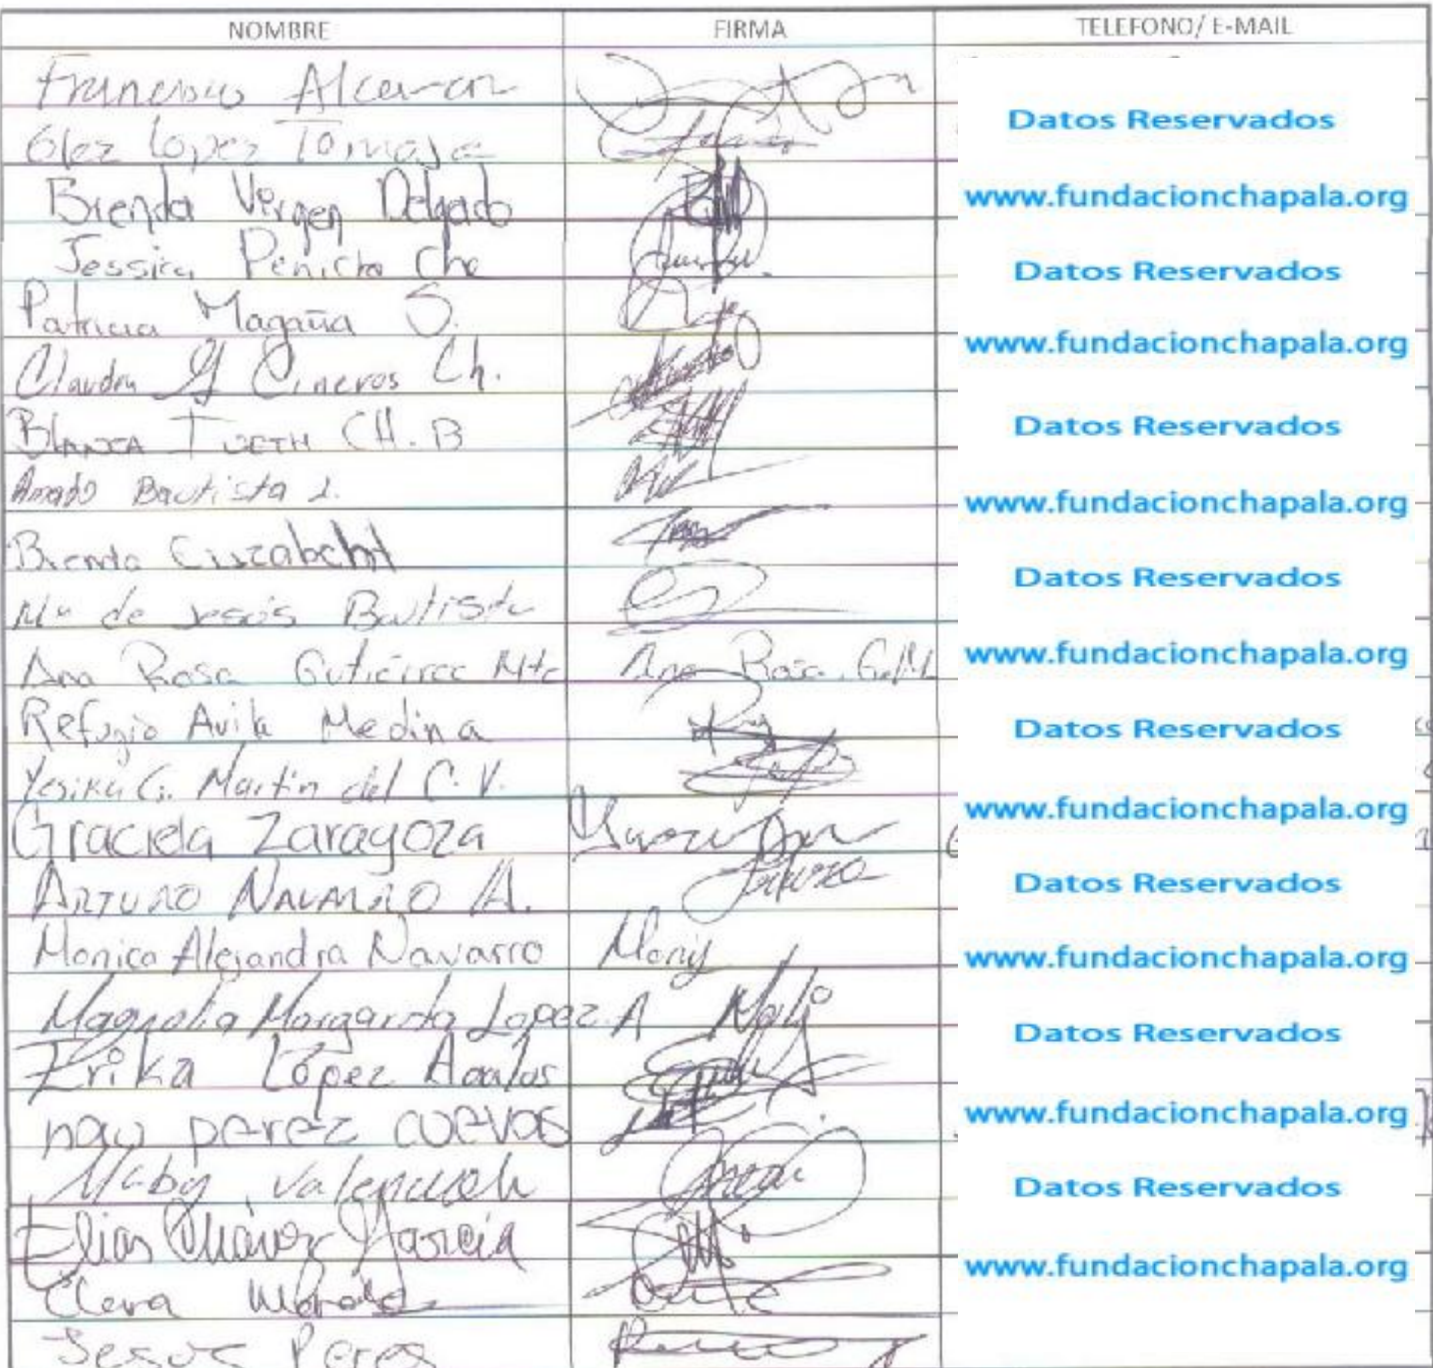 NOMBRE FIRMA TELEFONO/ E-MAIL
Francisco Alcaron
Glez Lopez Tomasa
Datos Reservados
Brenda Virgen Delgado
www.fundacionchapala.org
Jessica Penicho Che
Datos Reservados
Patricia Magaña S.
www.fundacionchapala.org
Claudia G Cineros Ch.
Blanca CH. B
Datos Reservados
Amado Bautista J.
www.fundacionchapala.org
Brenda
Datos Reservados
Ma de Jesús Bautista
Ana Rosa Gutiérrez Mtz Ana Rosa G.M.
www.fundacionchapala.org
Refugio Avila Medina
Datos Reservados
Yesika G. Martin del C. V.
www.fundacionchapala.org
Graciela Zaragoza
Arturo Navarro A.
Datos Reservados
Monica Alejandra Navarro Mony
www.fundacionchapala.org
Magnolia Margarita Lopez A
Datos Reservados
Erika López
perez cuevas
www.fundacionchapala.org
Datos Reservados
Elias Chávez García
www.fundacionchapala.org
Elena
Jesus Perez